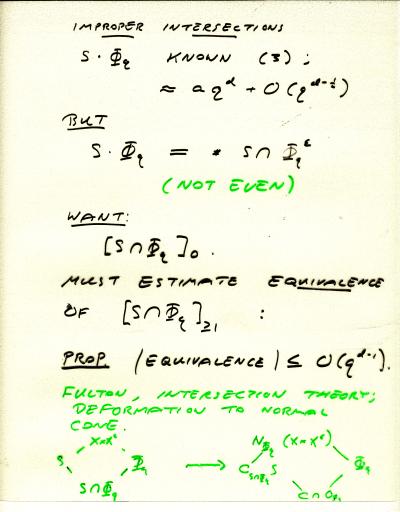 IMPROPER INTERSECTIONS
S · Φ_q KNOWN (3) ;
≈ a q^d + O(q^{d-½})
BUT
S · Φ_q = # S ∩ Φ_q^ε
(NOT EVEN)
WANT:
[S ∩ Φ_q]_0 .
MUST ESTIMATE EQUIVALENCE
OF [S ∩ Φ_q]_{≥1} :
PROP. |EQUIVALENCE| ≤ O(q^{d-1}).
FULTON, INTERSECTION THEORY;
DEFORMATION TO NORMAL
CONE.
X×X^ε N_{Φ_q} (X×X^ε)
S Φ_q → C_{S∩Φ_q} S Φ_q
S∩Φ_q C∩O_{Φ_q}